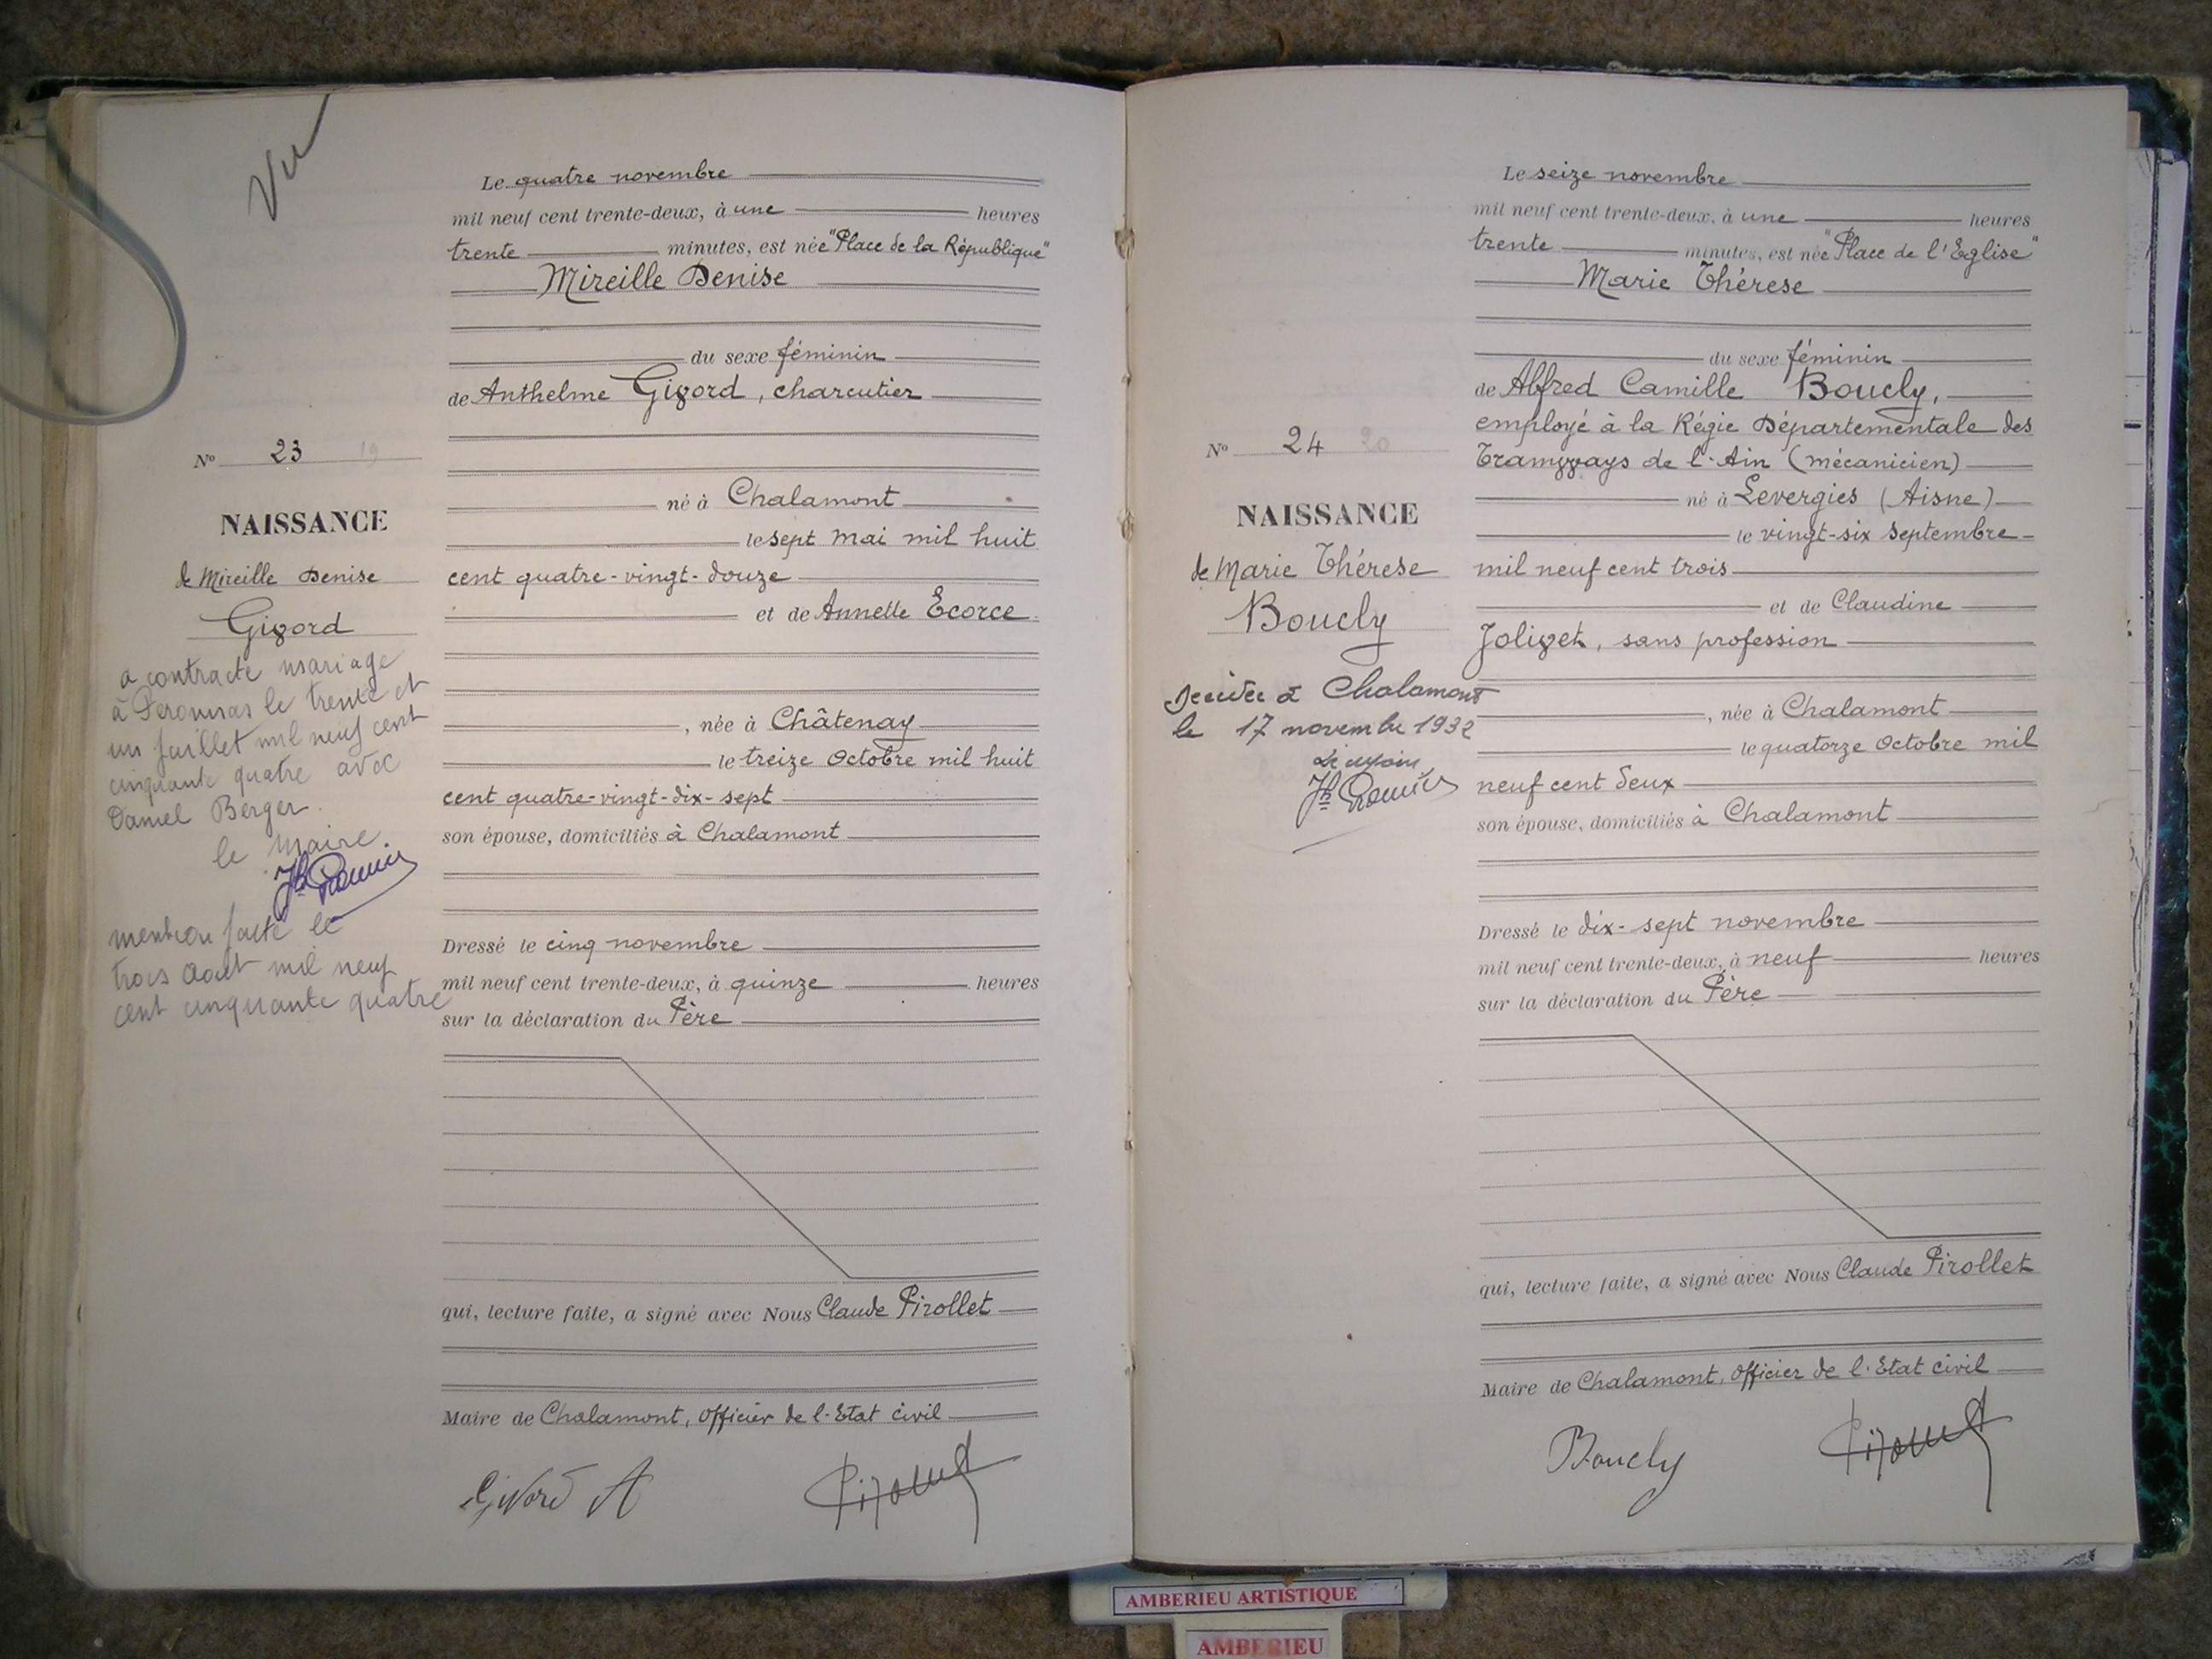 Vu
Le quatre novembre
mil neuf cent trente-deux, à une heures
trente minutes, est née "Place de la République"
Mireille Denise
du sexe féminin
de Anthelme Givord, charcutier
né à Chalamont
le sept mai mil huit
cent quatre-vingt-douze
et de Annette Ecorce
, née à Châtenay
le treize Octobre mil huit
cent quatre-vingt-dix-sept
son épouse, domiciliés à Chalamont
Dressé le cinq novembre
mil neuf cent trente-deux, à quinze heures
sur la déclaration du Père
qui, lecture faite, a signé avec Nous Claude Pirollet
Maire de Chalamont, Officier de l'Etat civil
Givord A
No 23 19
NAISSANCE
de Mireille Denise
Givord
a contracté mariage
à Peronnas le trente et
un juillet mil neuf cent
cinquante quatre avec
Daniel Berger.
le Maire.
mention faite le
trois Août mil neuf
cent cinquante quatre
Le seize novembre
mil neuf cent trente-deux, à une heures
trente minutes, est née "Place de l'Eglise"
Marie Thérese
du sexe féminin
de Alfred Camille Boucly,
employé à la Régie Départementale des
Tramways de l'Ain (mécanicien)
né à Levergies (Aisne)
le vingt-six Septembre
mil neuf cent trois
et de Claudine
Jolivet, sans profession
, née à Chalamont
le quatorze Octobre mil
neuf cent deux
son épouse, domiciliés à Chalamont
Dressé le dix-sept novembre
mil neuf cent trente-deux, à neuf heures
sur la déclaration du Père
qui, lecture faite, a signé avec Nous Claude Pirollet
Maire de Chalamont, Officier de l'Etat civil
Boucly
No 24 20
NAISSANCE
de Marie Thérese
Boucly
Décédée à Chalamont
le 17 novembre 1932
AMBERIEU ARTISTIQUE
AMBERIEU